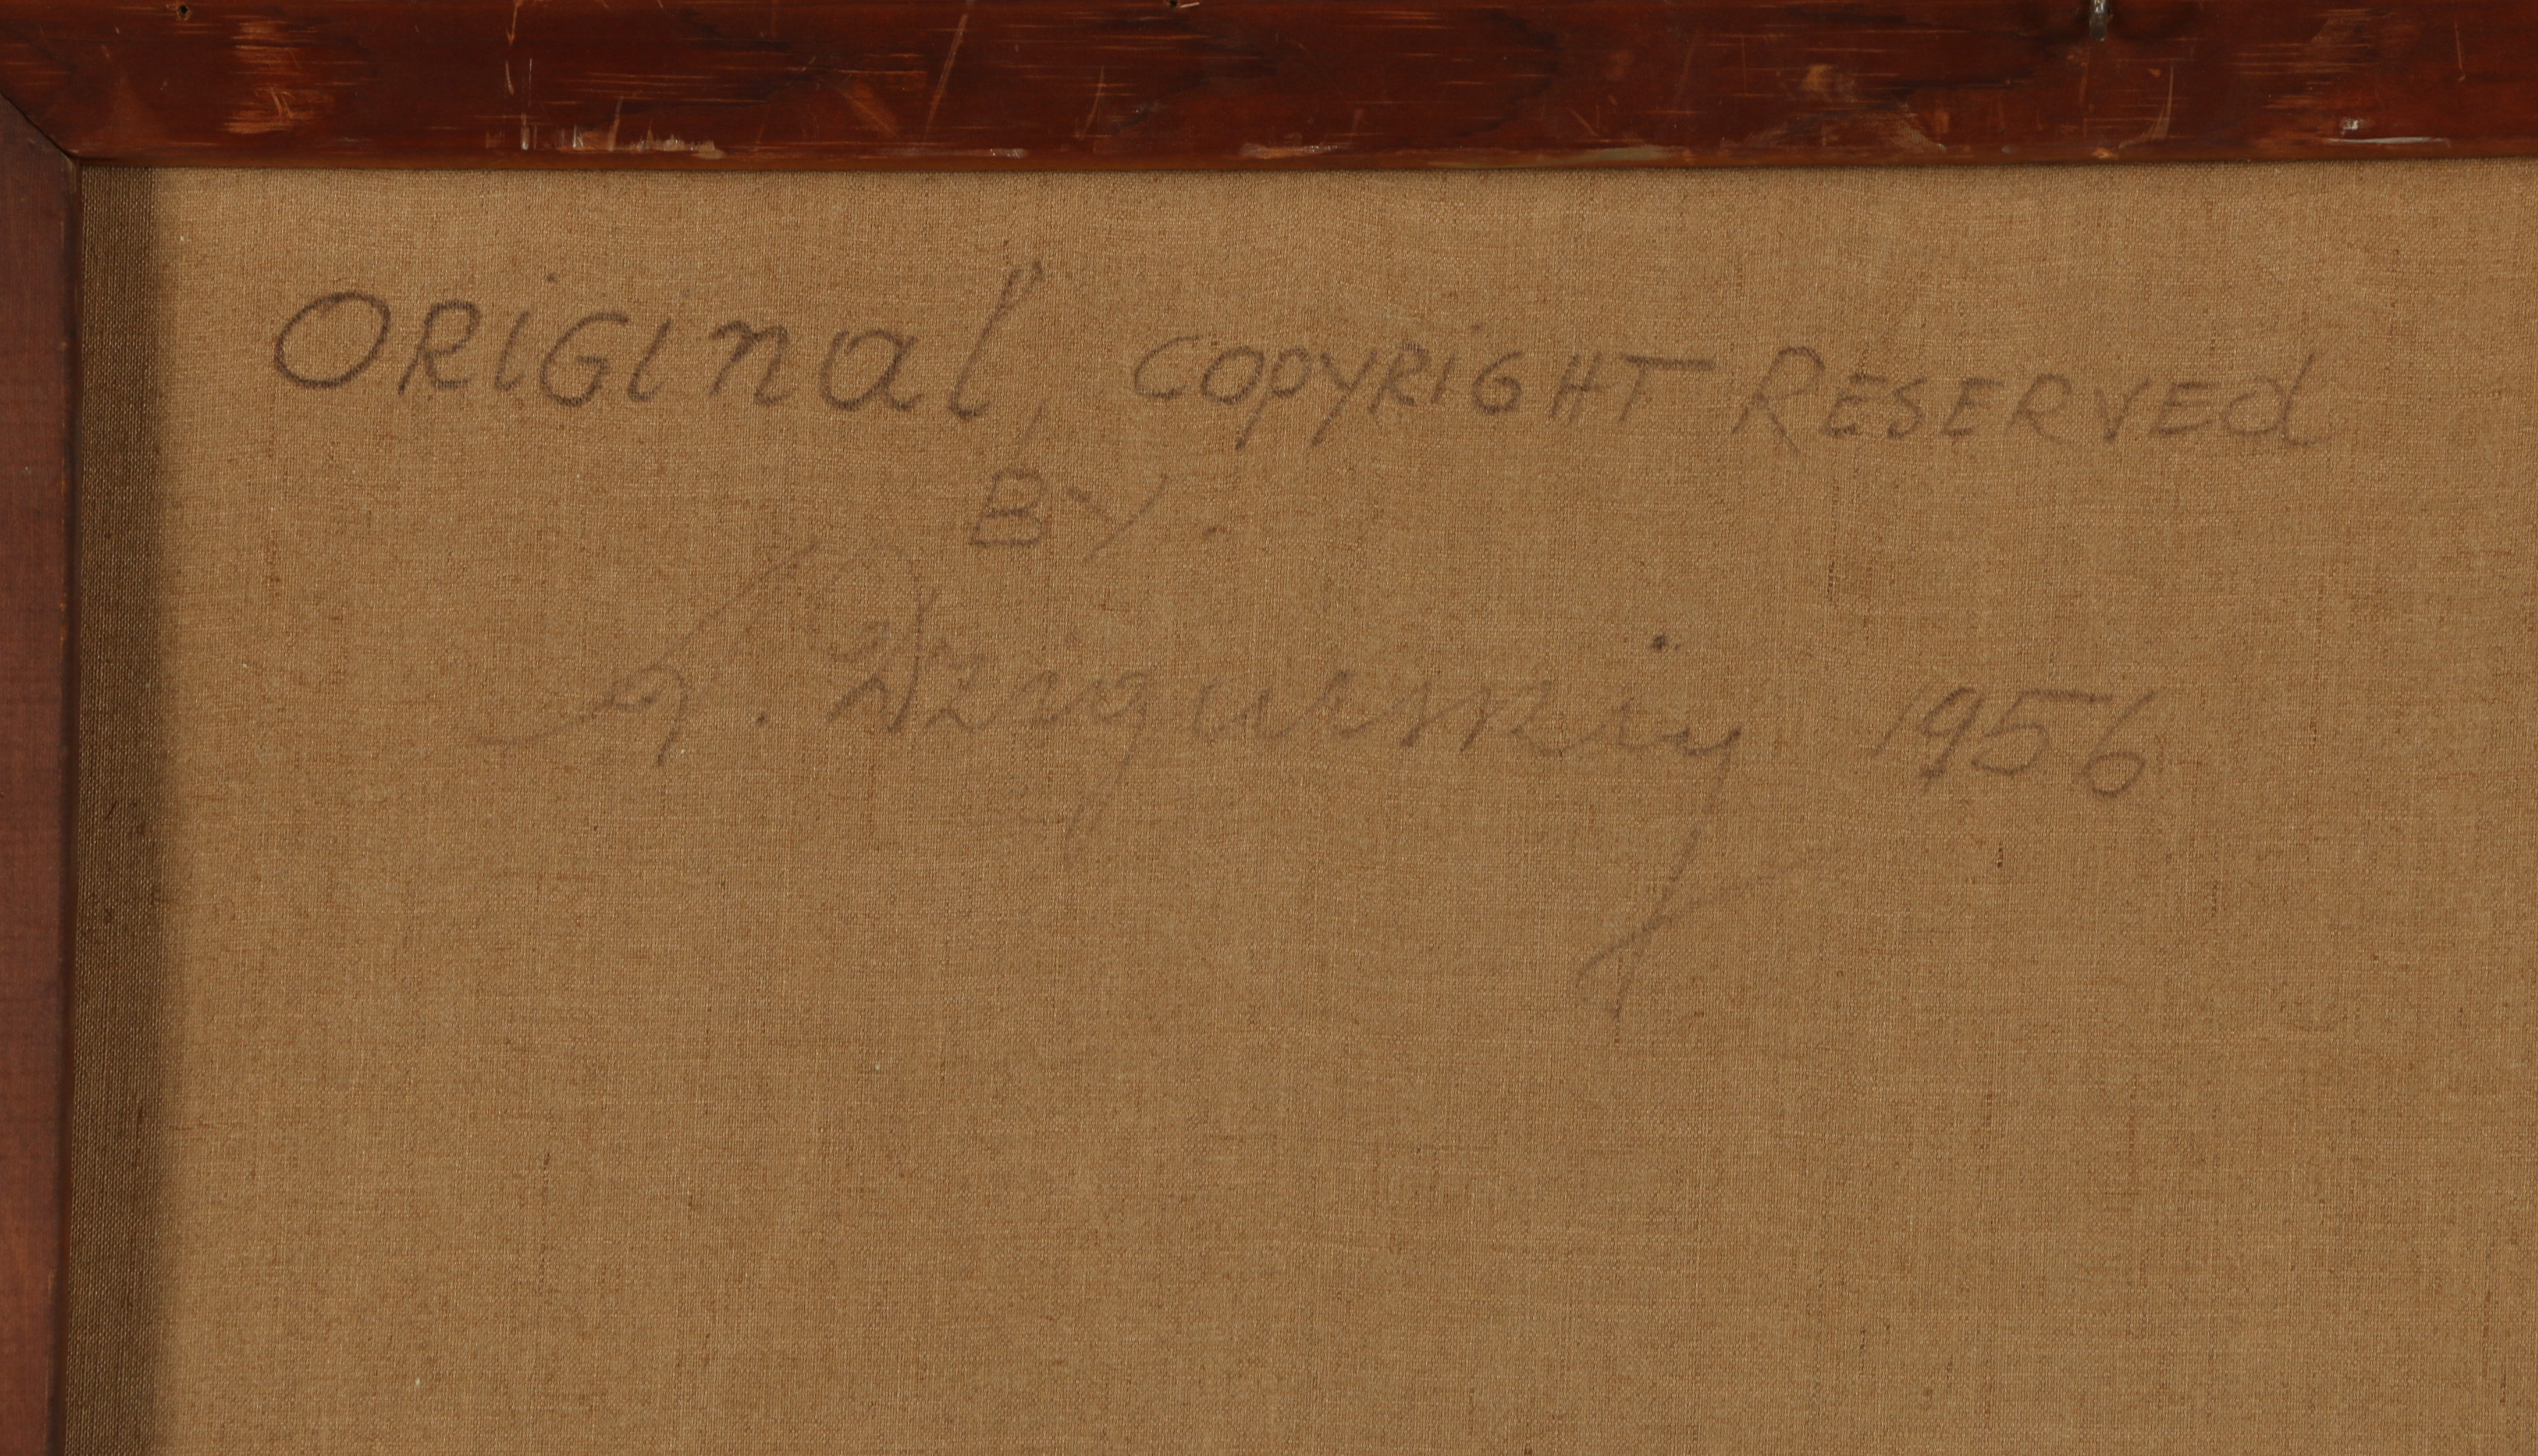 ORiGinal, COPYRiGHT RESERVEd
BY
A. Dzigurski 1956